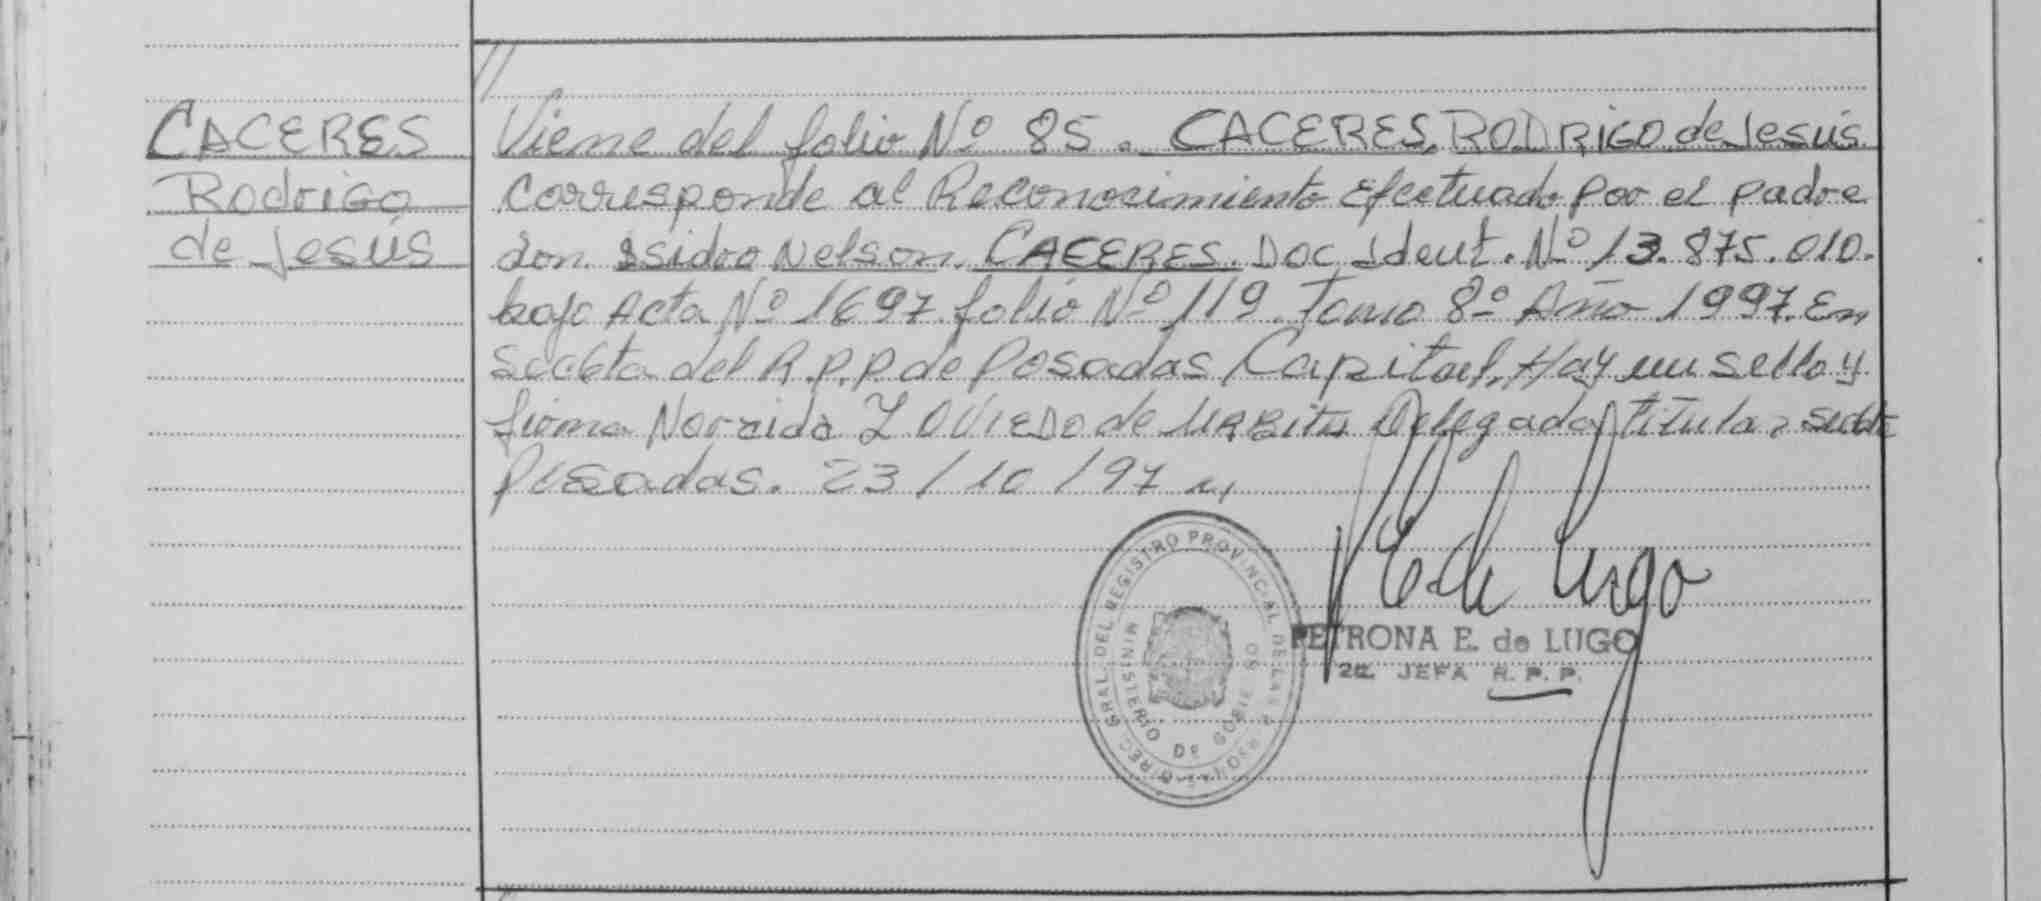 CACERES
Rodrigo
de Jesús
//
Viene del folio Nº 85. CACERES, RODRIGO de Jesús
Corresponde al Reconocimiento Efectuado por el padre
don Isidro Nelson CACERES. Doc Ident. Nº 13.875.010.
bajo Acta Nº 1697 folio Nº 119 Tomo 8º Año 1997. En
Secc 6ta del R.P.P. de Posadas Capital. Hay un sello y
firma Norzida OVIEDO de Delegada titular
Posadas. 23/10/97
DIREC. GRAL. DEL REGISTRO PROVINCIAL DE LAS PERSONAS
MINISTERIO DE GOBIERNO
PETRONA E. de LUGO
2a. JEFA R. P. P.